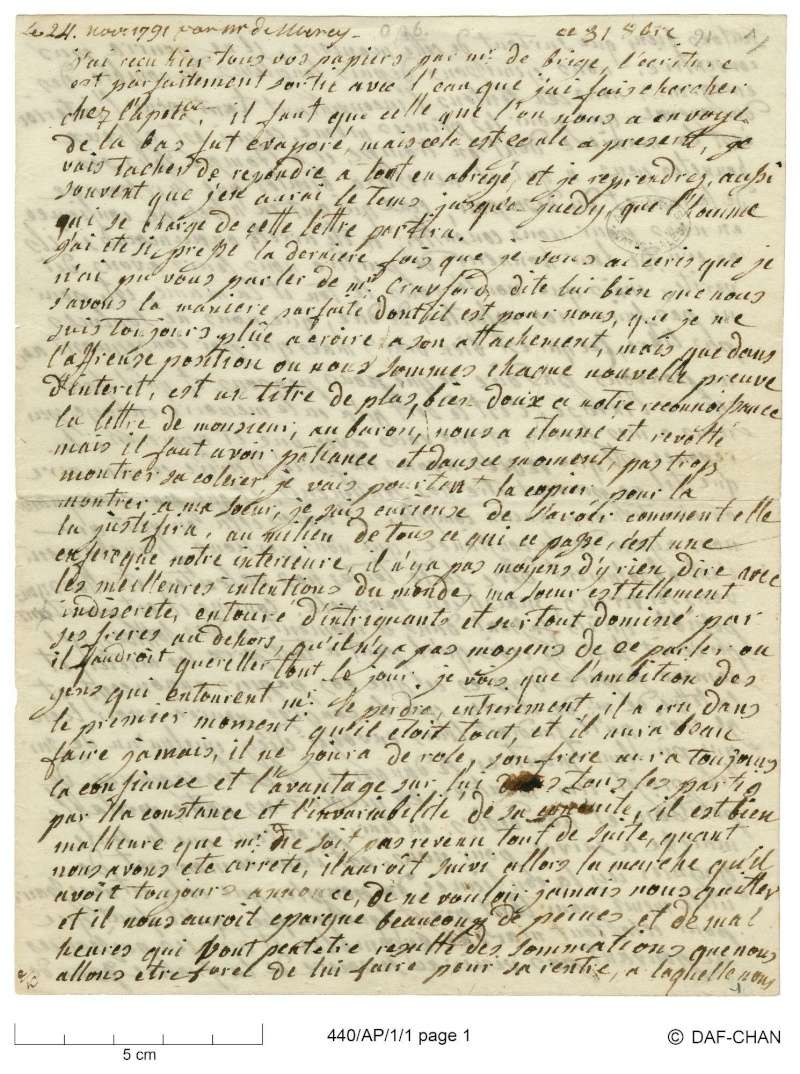 Le 24. nov. 1791 par mr de Mercy - ce 31 8bre
J'ai recu hier tous vos papiers par mr. de brige, l'ecriture
est parfaitement sortie avec l'eau que j'ai fais chercher
chez l'apote:, il faut que celle que l'on nous a envoye
de la bas fut evaporé, mais cela est egale a present, je
vais tacher de repondre a tout en abregé, et je reprendres, aussi
souvent que j'en aurai le tems jusqu'a jeudy, que l'homme
qui se charge de cette lettre partira.
j'ai ete si pressé la derniere fois que je vous ai ecris que je
n'ai pu vous parler de mr. Cravford, dite lui bien que nous
s'avons la maniere parfaite dont il est pour nous, que je me
suis toujours plûe a croire a son attachement, mais que dans
l'affreuse position ou nous sommes chaque nouvelle preuve
d'interet, est un titre de plus, bien doux a notre reconnoissance
la lettre de monsieur, au baron, nous a étonné et revolté
mais il faut avoir patiance et dans ce moment, pas trop
montrer sa colerer, je vais pourtent la copier, pour la
montrer a ma soeur, je suis curieuse de savoir comment elle
la justifira, au milieu de tous ce qui ce passe, c'est une
enfer que notre interieure, il n'y a pas moyens d'y rien dire avec
les meilleures intentions du monde, ma soeur est tellement
indiscrete, entouré d'intriguants et surtout dominé par
ses freres au dehors, qu'il n'y a pas moyens de ce parler ou
il faudroit quereller tout le jour. je vois que l'ambition des
gens qui entourent mr. le perdra, entierement, il a cru dans
le premier moment qu'il etoit tout, et il aura beau
faire jamais, il ne joura de role, son frere aura toujours
la confiance et l'avantage sur lui dans tous les partis
par la constance et l'invariabilité de sa conduite, il est bien
malheure que mr. ne soit pas revenu tout de suite, quant
nous avons ete arreté, il auroît suivi allors la marche qu'il
avoit toujours annoncé, de ne vouloir jamais nous quitter
et il nous auroit eparque beaucoup de peines et de mal
heures qui vont peutetre resulté des sommations que nous
allons etre forcé de lui faire pour sa rentré, a laquelle nous
5 cm
440/AP/1/1 page 1
© DAF-CHAN